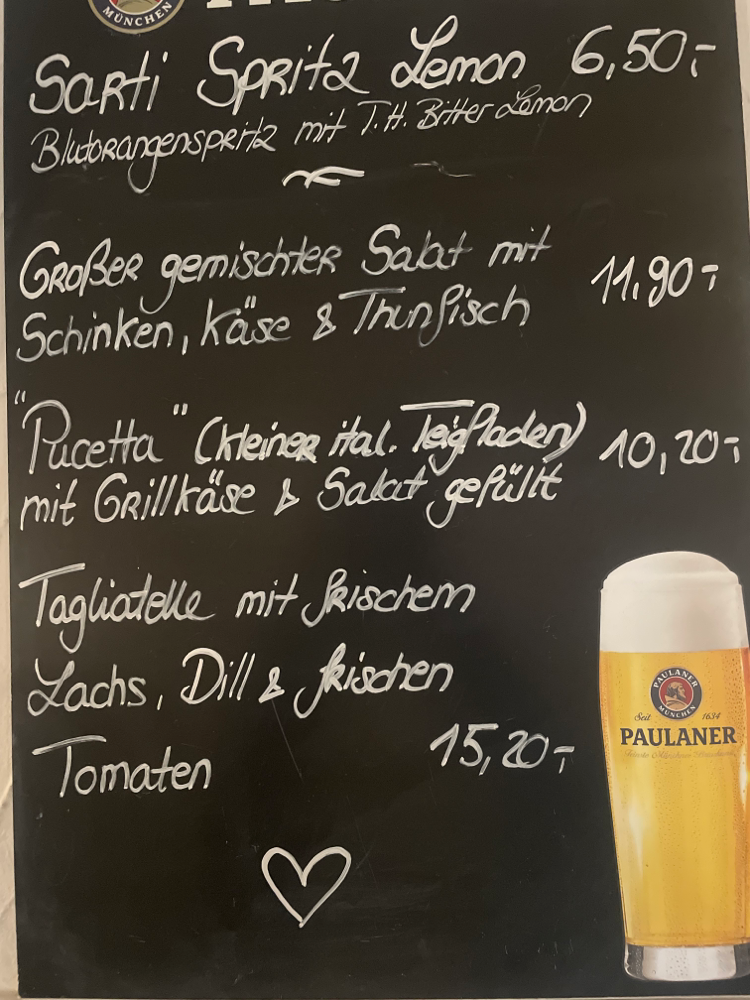 MÜNCHEN
Sarti Spritz Lemon 6,50,-
Blutorangenspritz mit T.H. Bitter Lemon
Großer gemischter Salat mit
Schinken, Käse & Thunfisch 11,90,-
"Pucetta" (kleiner ital. Teigfladen) 10,20,-
mit Grillkäse & Salat gefüllt
Tagliatelle mit frischem
Lachs, Dill & frischen
Tomaten 15,20,-
PAULANER
MÜNCHEN
Seit 1634
PAULANER